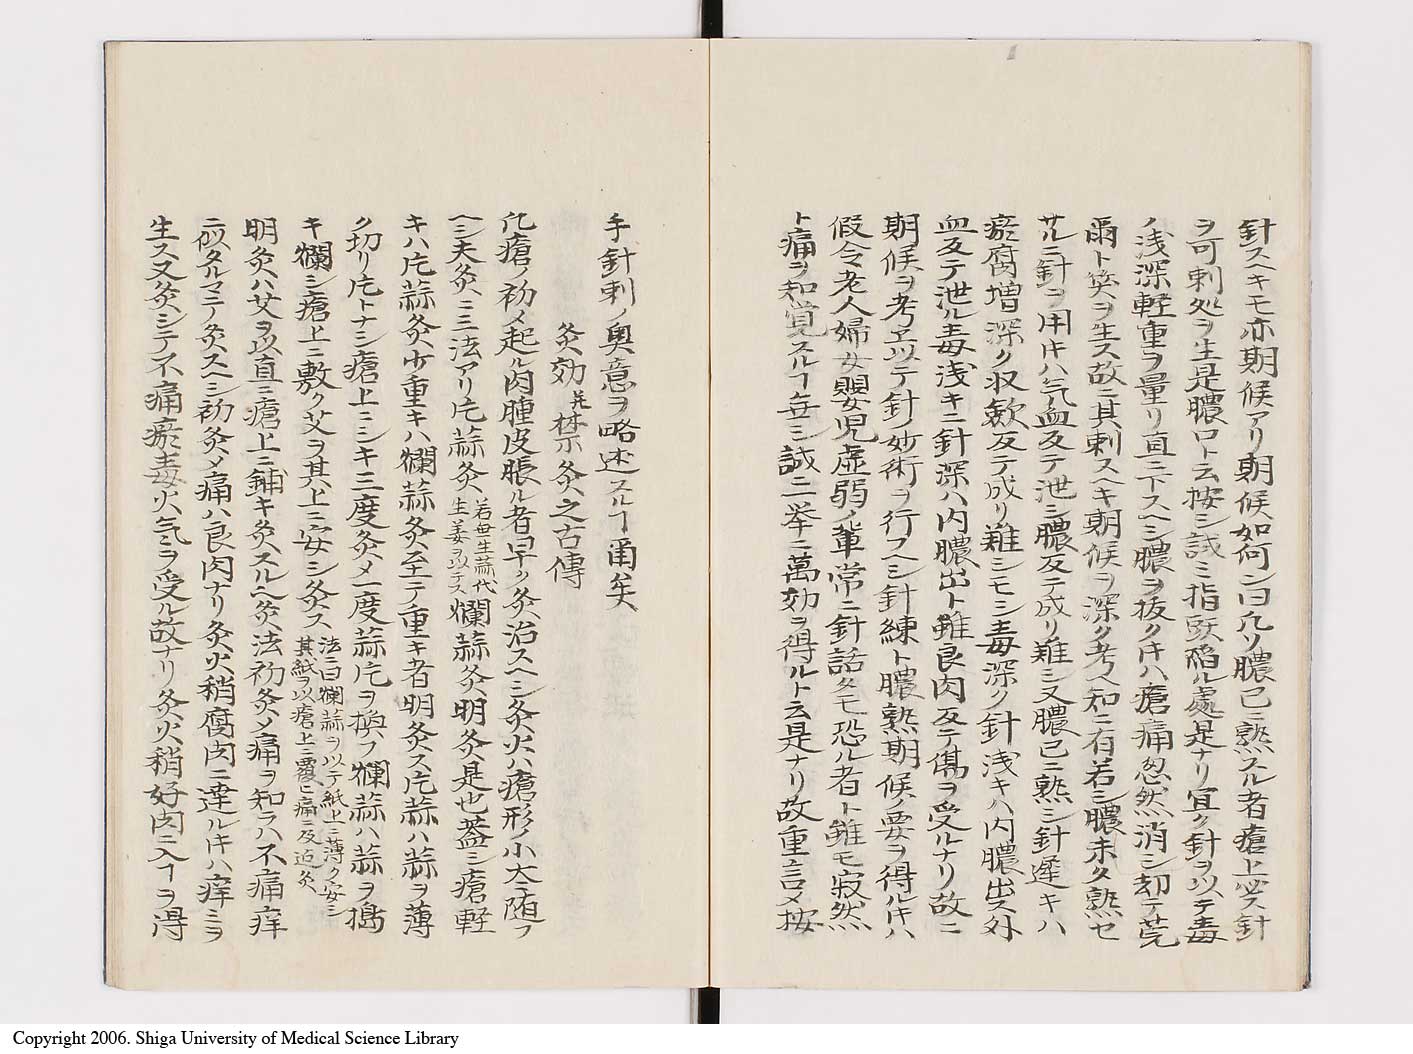 針スヘキモ亦期候アリ期候如何ン曰凡ソ膿已ニ熟スル者瘡上必ス針
ヲ可刺処ヲ生是膿口ト云按シ試ミ指頭陥ル處是ナリ宜ク針ヲ以テ毒
ノ浅深軽重ヲ量リ直ニ下スヘシ膿ヲ抜クキハ瘡痛忽然消シ却テ莞
爾ト笑ヲ生ス故ニ其刺スヘキ期候ヲ深ク考ヘ知ニ有若シ膿未タ熟セ
サルニ針ヲ用キハ气血反テ泄シ膿反テ成リ難シ又膿已ニ熟シ針遲キハ
瘀腐増深ク収歛反テ成リ難シモシ毒深ク針浅キハ内膿出ス外
血反テ泄ル毒浅キニ針深ハ内膿出ト雖良肉反テ傷ヲ受ルナリ故ニ
期候ヲ考ヱ以テ針妙術ヲ行フヘシ針練ト膿熟期候ノ要ヲ得ルキハ
假令老人婦女嬰児虚弱ノ輩常ニ針話タモ恐ル者ト雖モ寂然
ト痛ヲ知覚スルヿ無シ誠ニ一挙ニ萬効ヲ得ルト云是ナリ故重言メ按
手針刺ノ奥意ヲ略述スルヿ爾矣
灸効并禁灸之古傳
凡瘡ノ初メ起ル肉腫皮脹ル者早ク灸治スヘシ灸火ハ瘡形ノ小大随フ
ヘシ夫灸ニ三法アリ片蒜灸 若毋生蒜代生姜ヲ以テス 爛蒜灸明灸是也蓋シ瘡軽
キハ片蒜灸少重キハ爛蒜灸至テ重キ者明灸ス片蒜ハ蒜ヲ薄
ク切リ片トナシ瘡上ニシキ三度灸メ一度蒜片ヲ換フ爛蒜ハ蒜ヲ搗
キ爛シ瘡上ニ敷ク艾ヲ其上ニ安シ灸ス 法ニ曰爛蒜ヲ以テ紙上ニ薄ク安シ其紙ヲ以瘡上ニ覆ヒ痛ニ及迠灸
明灸ハ艾ヲ以直ニ瘡上ニ鋪キ灸スルヘ灸法初灸メ痛ヲ知ラハ不痛痒
ニ似タルマテ灸スヘシ初灸メ痛ハ良肉ナリ灸火稍腐肉ニ達ルキハ痒ミヲ
生ス又灸シテ不痛瘀毒火気ヲ受ル故ナリ灸火稍好肉ニ入ヿヲ得
Copyright 2006. Shiga University of Medical Science Library